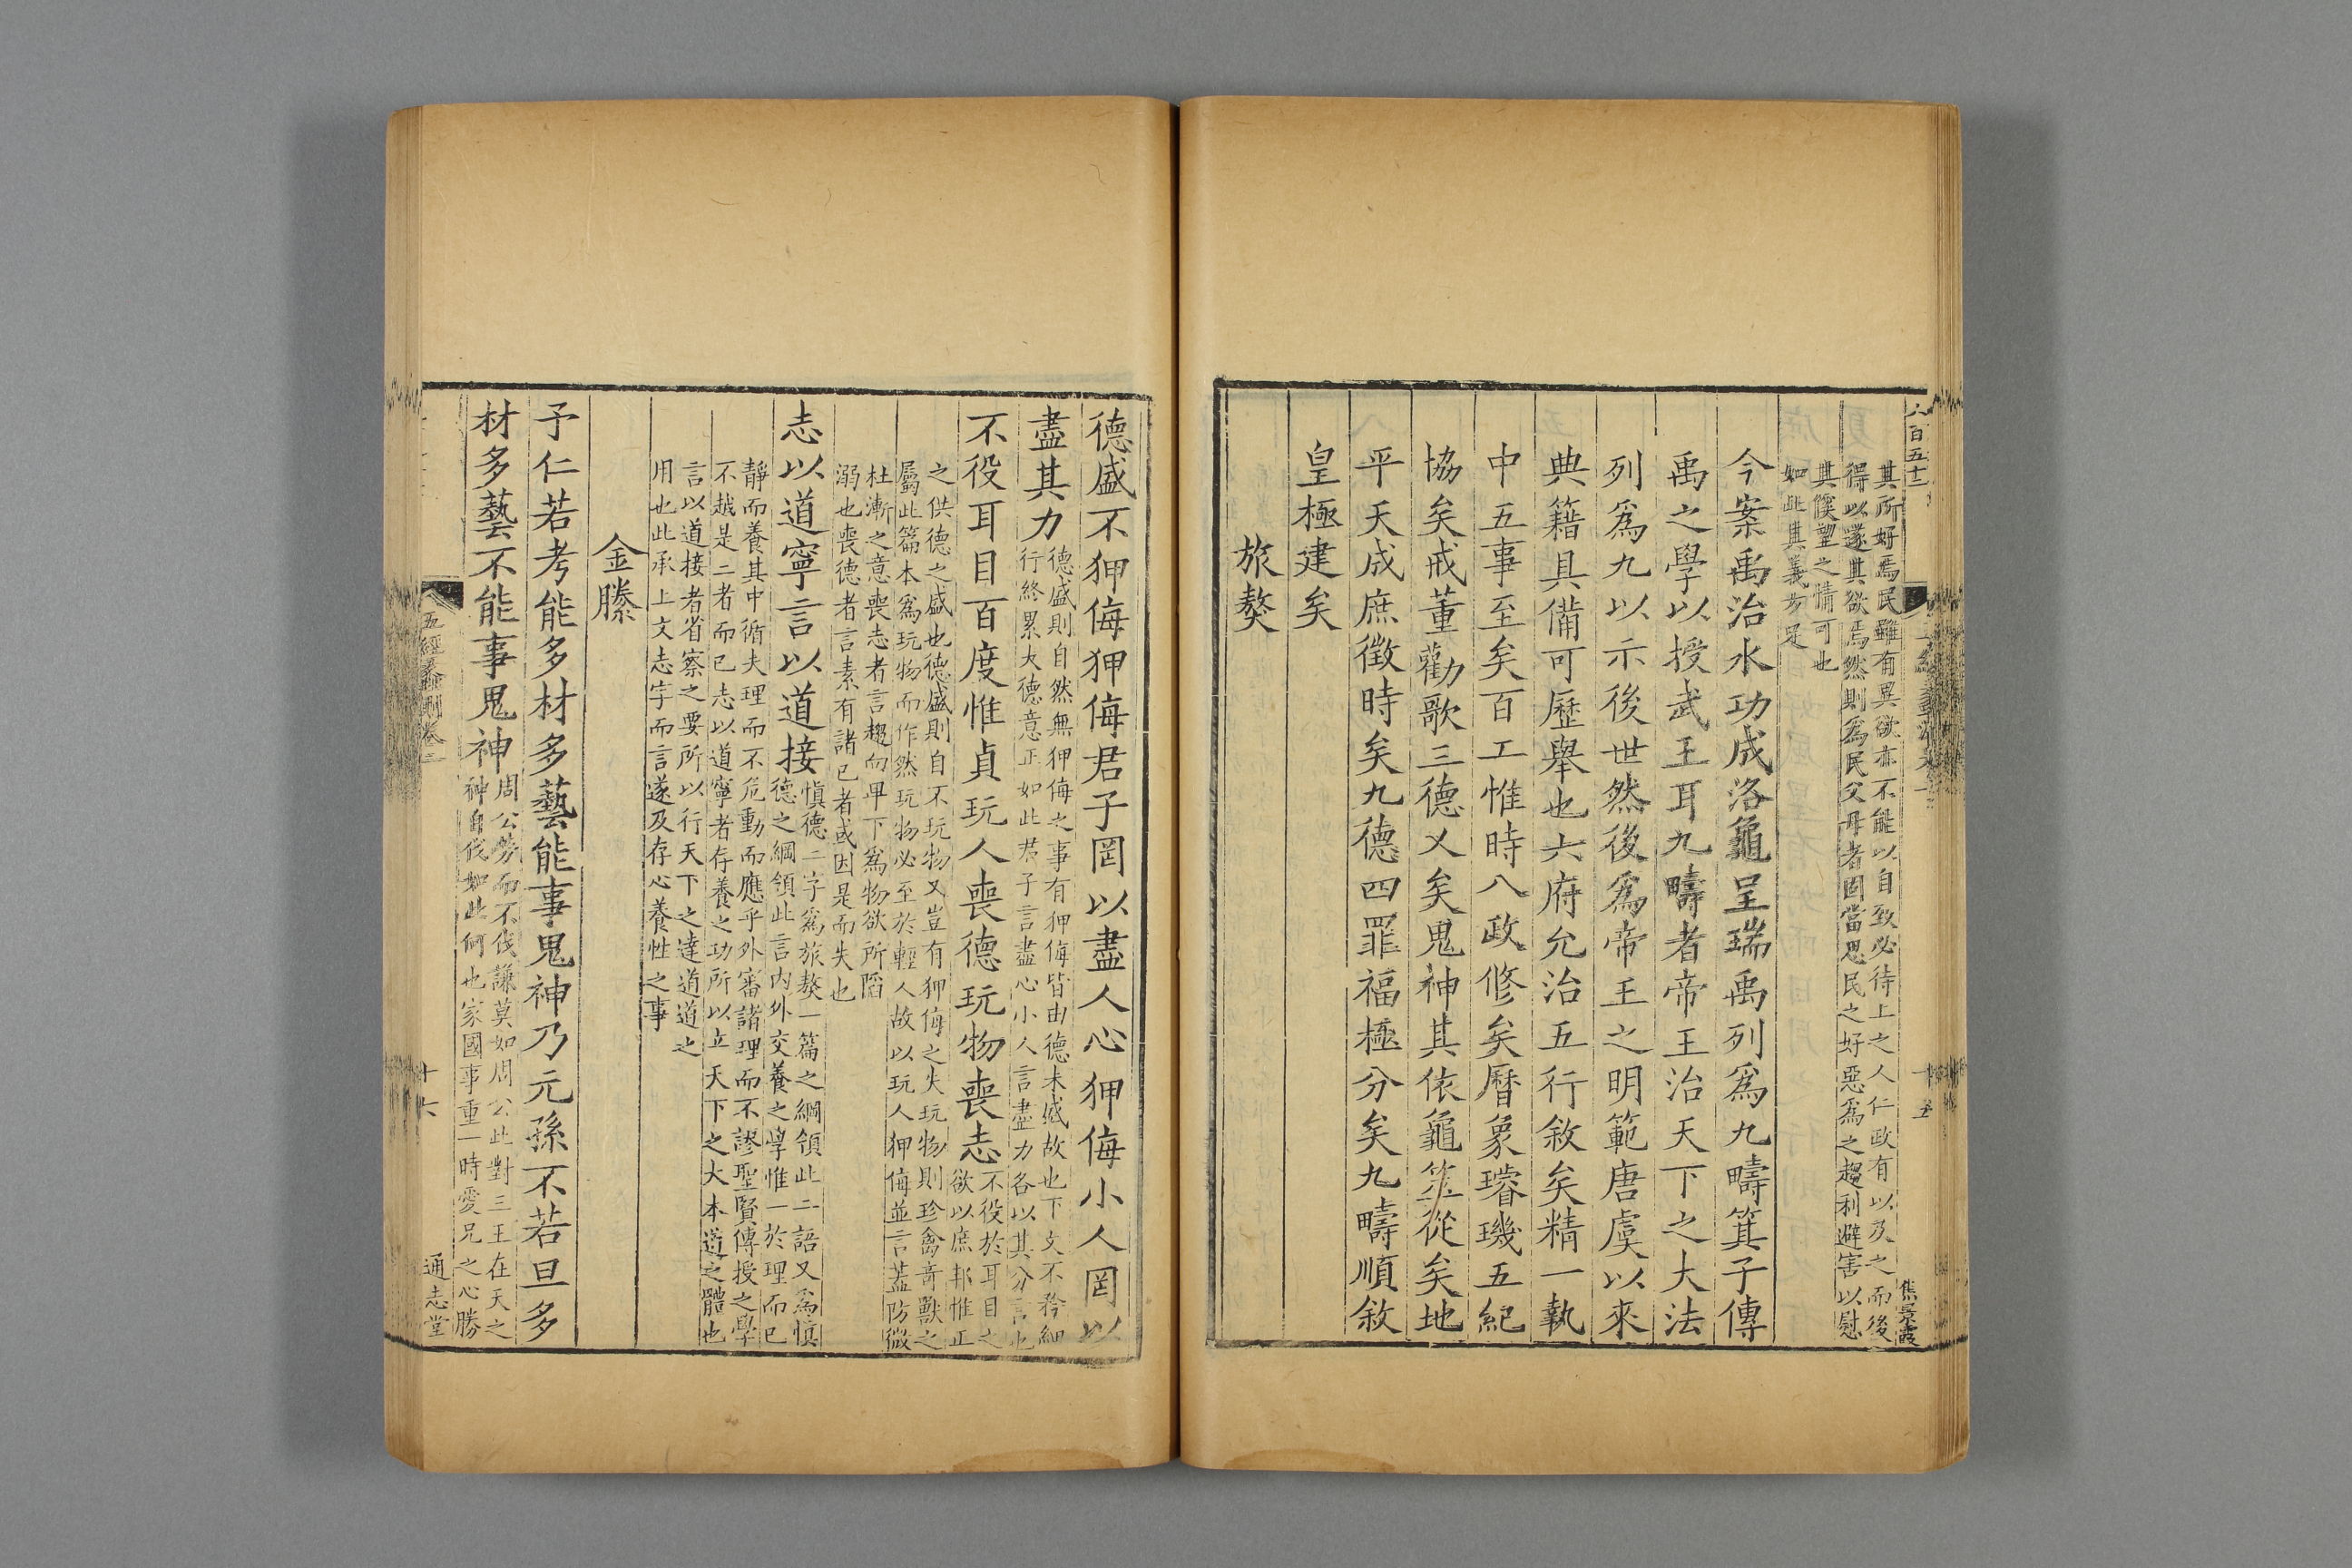 其所好焉民雖有異欲亦不能以自致必待上之人仁政有以及之而後
得以遂其欲焉然則爲民父母者固當思民之好惡爲之趨利避害以慰
其傒望之情可也
如此其義方足
今案禹治水功成洛龜呈瑞禹列爲九疇箕子傳
禹之學以授武王耳九疇者帝王治天下之大法
列爲九以示後世然後爲帝王之明範唐虞以來
典籍具備可歷舉也六府允治五行敘矣精一執
中五事至矣百工惟時八政修矣曆象璿璣五紀
協矣戒董勸歌三德乂矣鬼神其依龜筮從矣地
平天成庶徵時矣九德四罪福極分矣九疇順敘
皇極建矣
旅獒
德盛不狎侮狎侮君子罔以盡人心狎侮小人罔以
盡其力
德盛則自然無狎侮之事有狎侮皆由德未盛故也下文不矜細
行終累大德意正如此君子言盡心小人言盡力各以其分言也
不役耳目百度惟貞玩人喪德玩物喪志
不役於耳目之
欲以庶邦惟正
之供德之盛也德盛則自不玩物又豈有狎侮之失玩物則珍禽奇獸之
屬此篇本爲玩物而作然玩物必至於輕人故以玩人狎侮並言蓋防微
杜漸之意喪志者言趨向卑下爲物欲所陷
溺也喪德者言素有諸已者或因是而失也
志以道寧言以道接
慎德二字爲旅獒一篇之綱領此二語又爲慎
德之綱領此言内外交養之學惟一於理而已
靜而養其中循夫理而不危動而應乎外審諸理而不謬聖賢傳授之學
不越是二者而已志以道寧者存養之功所以立天下之大本道之體也
言以道接者省察之要所以行天下之達道道之
用也此承上文志字而言遂及存心養性之事
金縢
予仁若考能多材多藝能事鬼神乃元孫不若旦多
材多藝不能事鬼神
周公勞而不伐謙莫如周公此對三王在天之
神自伐如此何也家國事重一時愛兄之心勝
五經蠡測卷三
十六
通志堂
六百五十二
十五
焦景霞